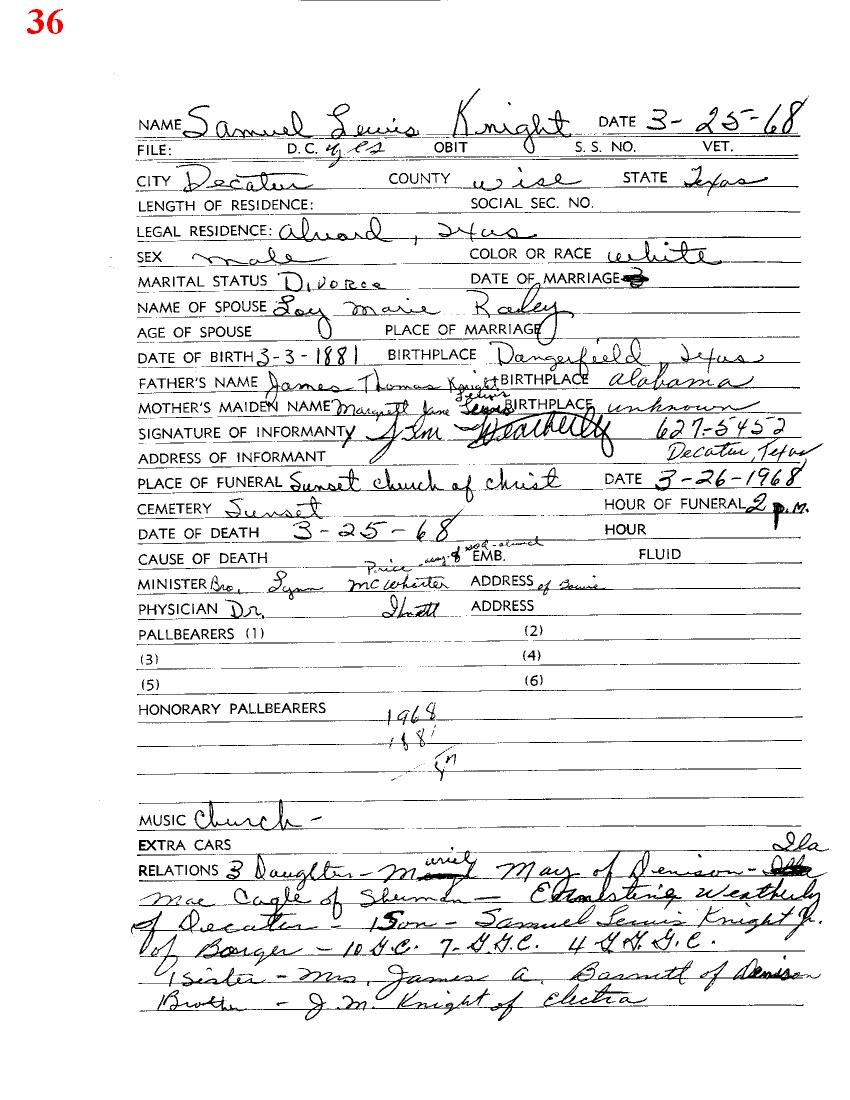 36
NAME Samuel Lewis Knight DATE 3-25-68
FILE: D.C. yes OBIT S. S. NO. VET.
CITY Decatur COUNTY wise STATE Texas
LENGTH OF RESIDENCE: SOCIAL SEC. NO.
LEGAL RESIDENCE: Alvord, Texas
SEX male COLOR OR RACE white
MARITAL STATUS Divorce DATE OF MARRIAGE
NAME OF SPOUSE Loy Marie Raley
AGE OF SPOUSE PLACE OF MARRIAGE
DATE OF BIRTH 3-3-1881 BIRTHPLACE Dangerfield, Texas
FATHER'S NAME James Thomas Knight BIRTHPLACE Alabama
MOTHER'S MAIDEN NAME Margrett Jane Lewis BIRTHPLACE unknown
SIGNATURE OF INFORMANT Jim Weatherly 627-5452
ADDRESS OF INFORMANT Decatur, Texas
PLACE OF FUNERAL Sunset church of christ DATE 3-26-1968
CEMETERY Sunset HOUR OF FUNERAL 2 p.m.
DATE OF DEATH 3-25-68 HOUR
CAUSE OF DEATH EMB. FLUID
MINISTER Bro. Lynn McWherter ADDRESS of Bowie
PHYSICIAN Dr. ADDRESS
PALLBEARERS (1) (2)
(3) (4)
(5) (6)
HONORARY PALLBEARERS 1968
188
MUSIC Church -
EXTRA CARS
RELATIONS 3 Daughter - Muriel May of Denison - Ila
Mae Cagle of Sherman - Weatherly
of Decatur - 1 Son - Samuel Lewis Knight Jr.
of Borger - 10 G.C. 7-G.G.C. 4 G.G.G.C.
1 Sister - Mrs. James A. Barnett of Denison
1 Brother - J.M. Knight of Electra